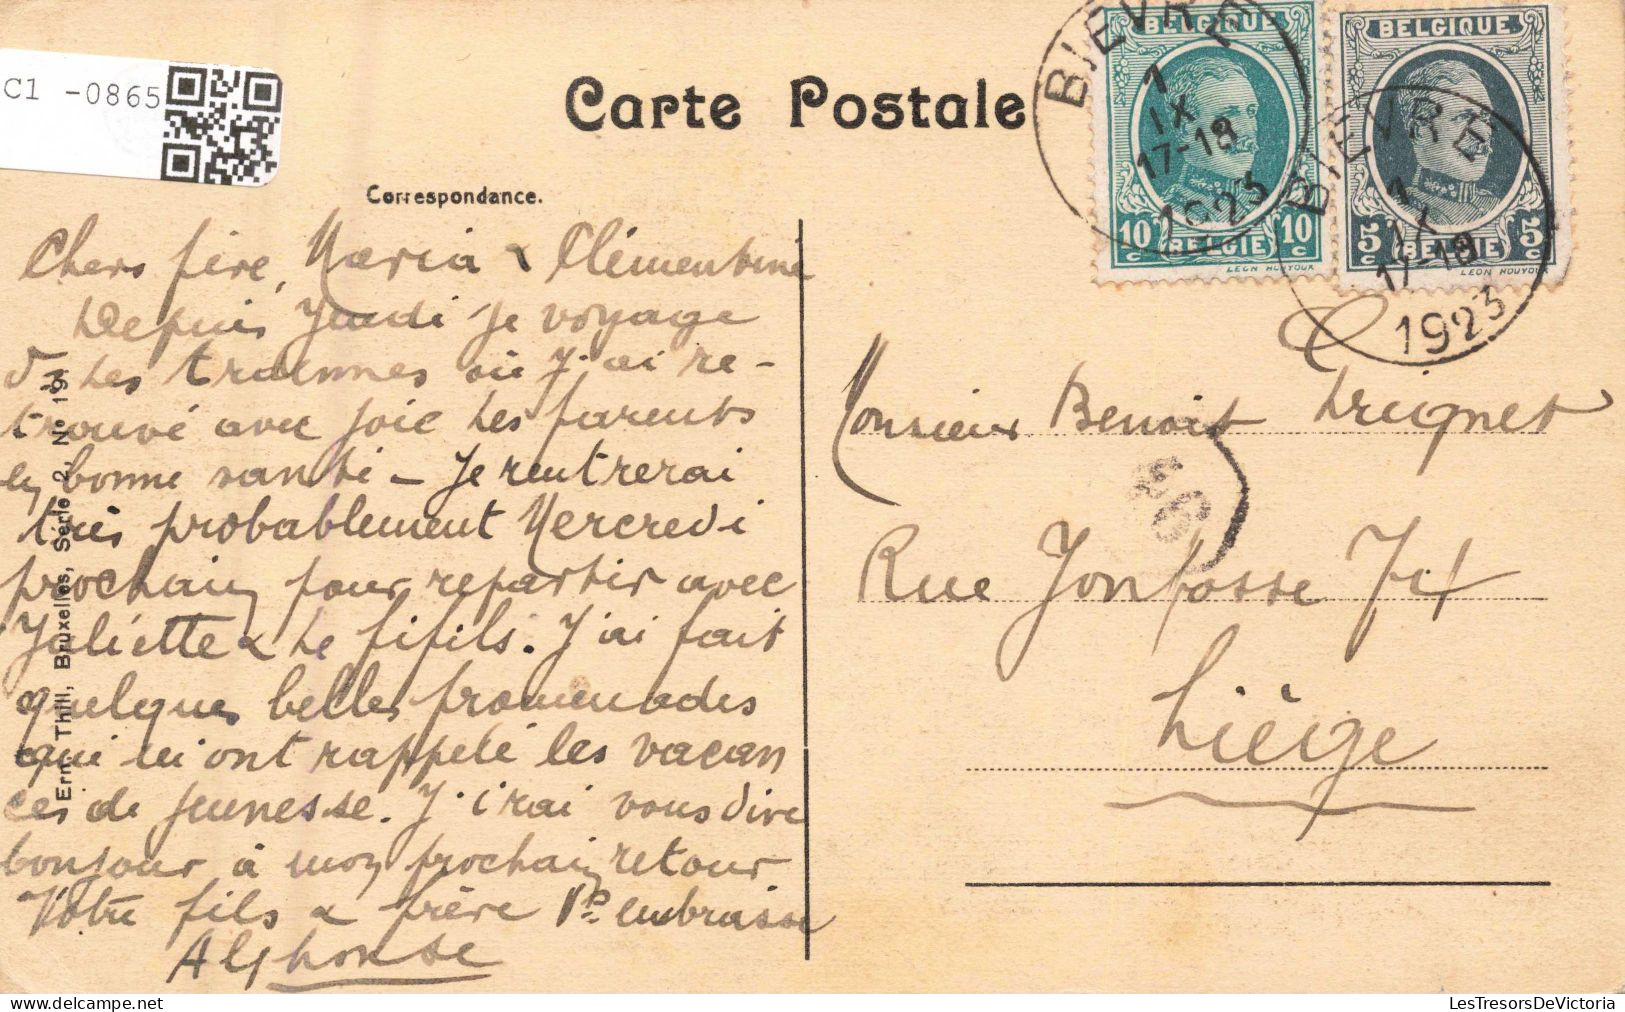 C1 -0865
Carte Postale
Correspondance.
Chers père, Maria & Clémentine
Depuis Jeudi je voyage
ds les Ardennes où j'ai re-
trouvé avec joie les parents
en bonne santé - Je rentrerai
très probablement Mercredi
prochain pour repartir avec
Juliette & le fifils. J'ai fait
quelques belles promenades
qui m'ont rappelé les vacan
ces de jeunesse. J'irai vous dire
bonjour à mon prochain retour
Votre fils & frère embrasse
Alphonse
Ern. Thill, Bruxelles, Série 2, No 19
BELGIQUE
10 c BELGIE 10 c
LEON HOUYOUX
BELGIQUE
5 c BELGIE 5 c
LEON HOUYOUX
BIEVRE
1
IX
17-18
1923
BIEVRE
1
IX
17-18
1923
Monsieur Benoit
Rue Jonfosse
Liège
LesTresorsDeVictoria